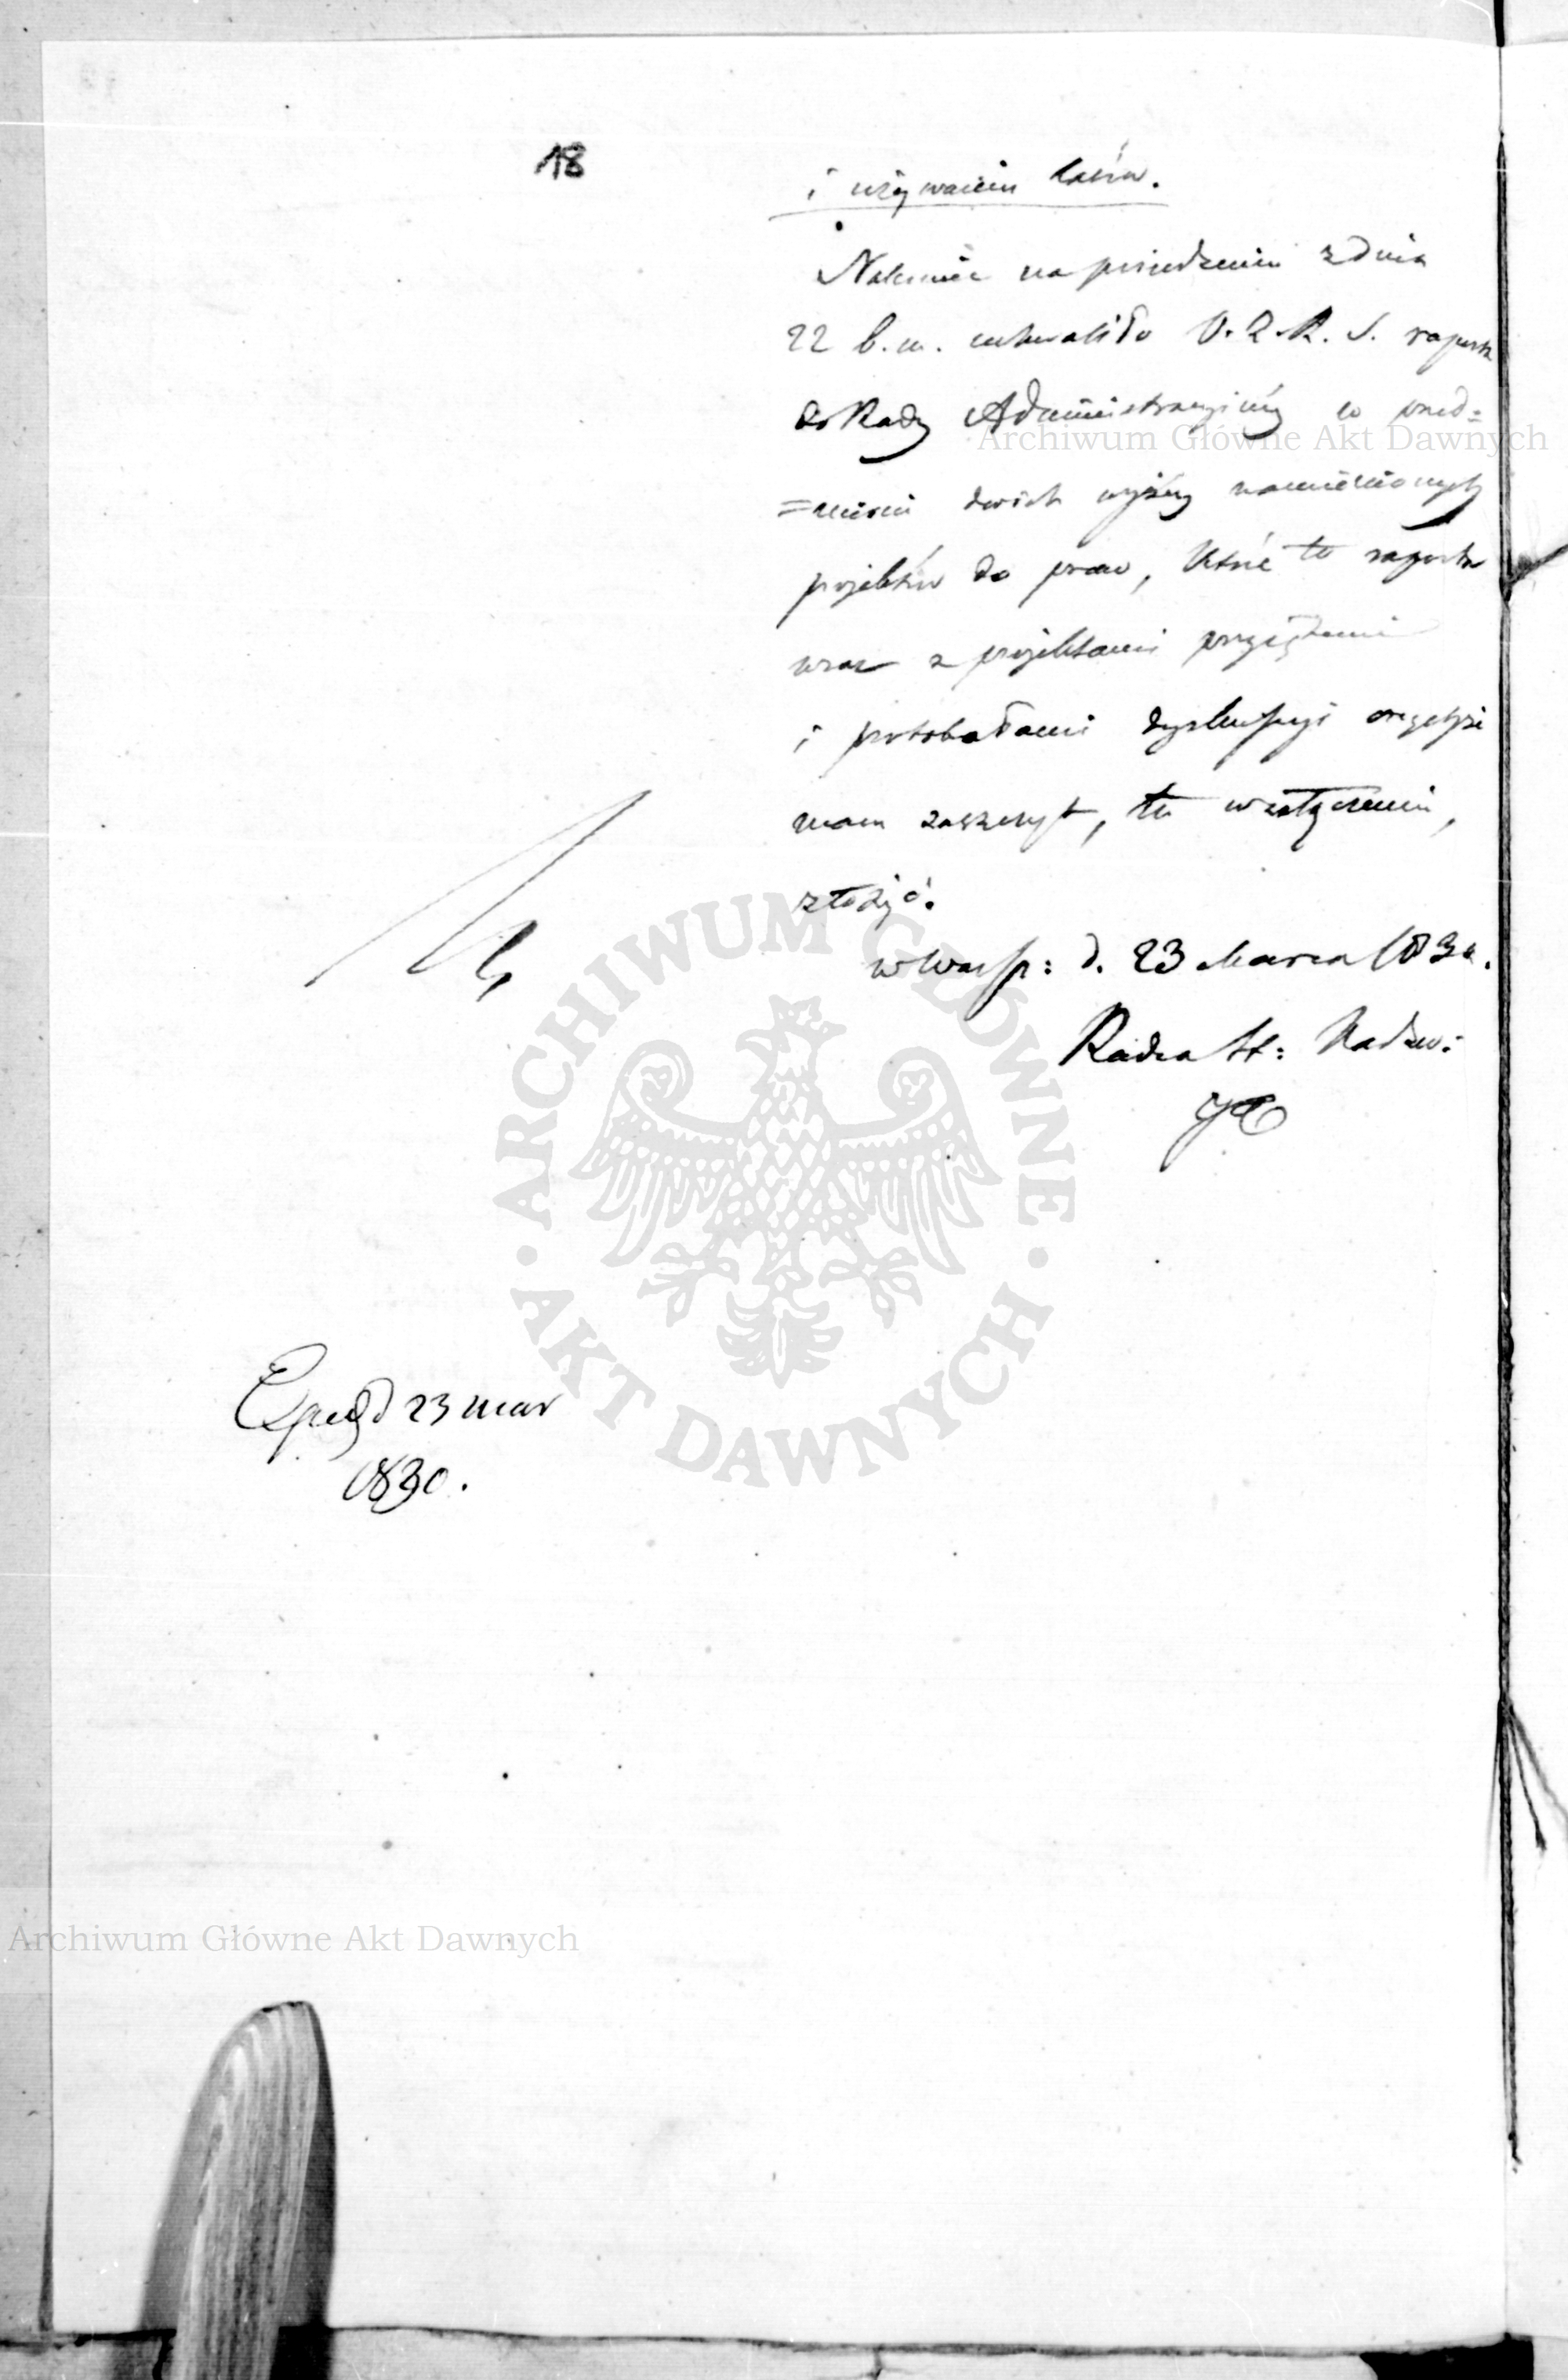 18
i używaniu lasów.
Nakoniec na posiedzeniu z dnia
22 b. m. uchwaliło O. Z. R. S. raport
do Rady Administracyiney w przed=
=miocie dwóch wyżey namienionych
projektów do praw, które to raporta
wraz z projektami przyjętemi
i protokołami dyskussyi
mam zaszczyt, tu w załączeniu,
złożyć.
w Warsz: d. 23 Marca 1830.
Radca St: Nadzw:
Exped d 23 mar
1830.
Archiwum Główne Akt Dawnych
ARCHIWUM GŁÓWNE · AKT DAWNYCH ·
Archiwum Główne Akt Dawnych